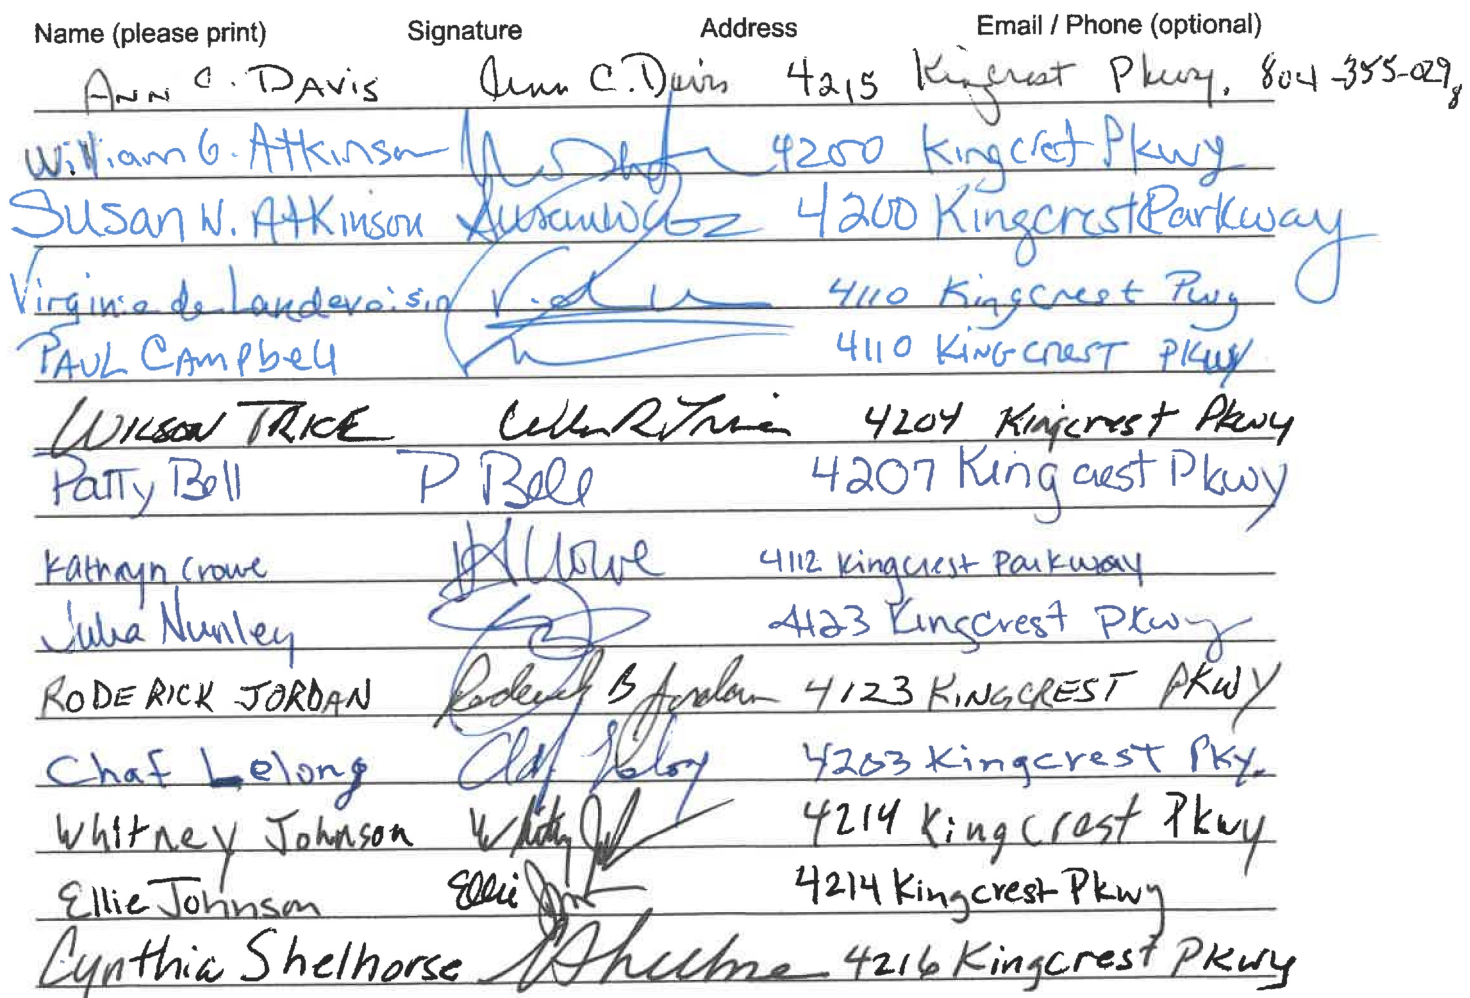 Name (please print) Signature Address Email / Phone (optional)
ANN C. DAVIS Ann C. Davis 4215 Kingcrest Pkwy. 804-355-0298
William G. Atkinson 4200 Kingcrest Pkwy
Susan W. Atkinson 4200 Kingcrest Parkway
Virginie de Landevoisin 4110 Kingcrest Pwy
PAUL CAMPbell 4110 KINGCREST PKWY
WILSON TRICE 4204 Kingcrest Pkwy
Patty Bell P Bell 4207 Kingcrest Pkwy
Kathryn Crowe 4112 Kingcrest Parkway
Julia Nunley 4123 Kingcrest Pkwy
RODERICK JORDAN Roderick B Jordan 4123 KINGCREST PKWY
Chaf Lelong 4203 Kingcrest Pky.
Whitney Johnson 4214 Kingcrest Pkwy
Ellie Johnson Ellie 4214 Kingcrest Pkwy
Cynthia Shelhorse 4216 Kingcrest Pkwy